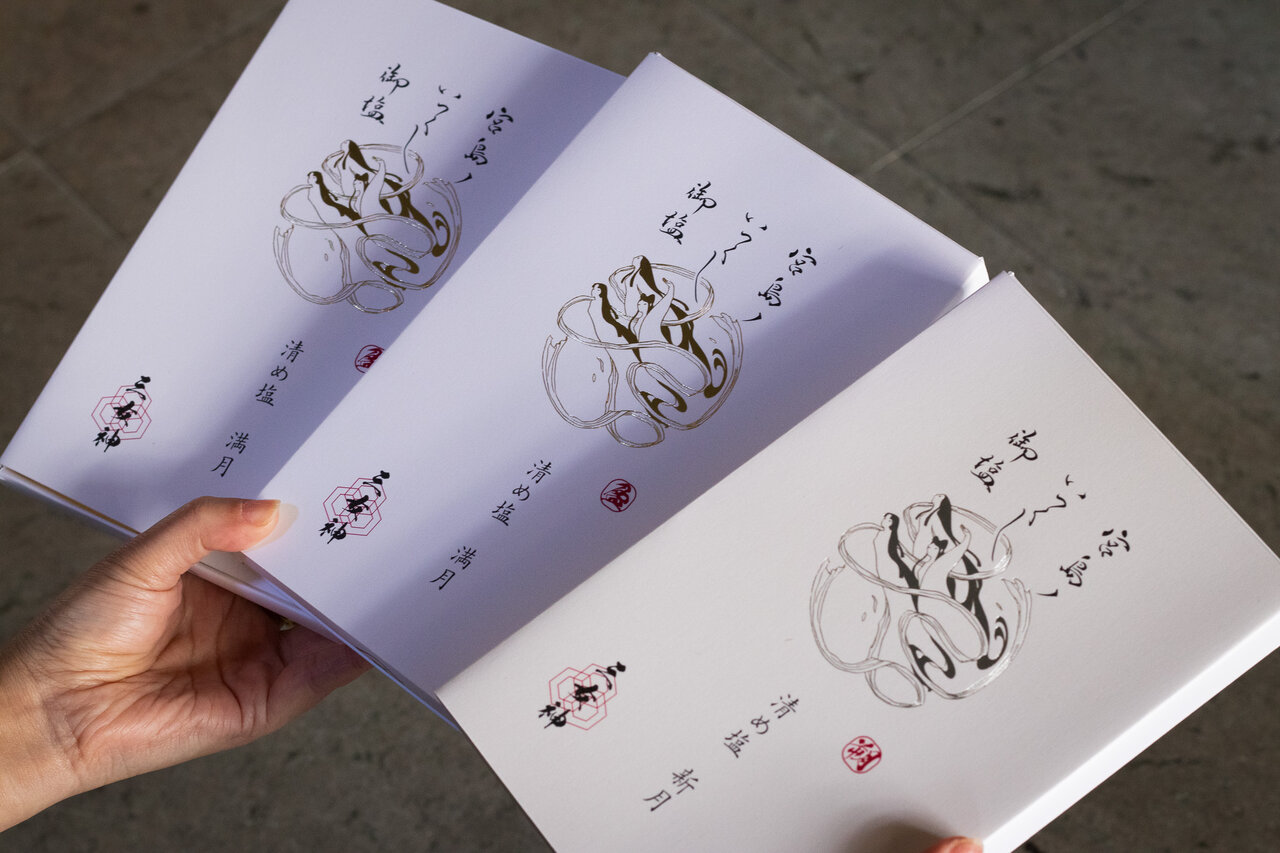 宮島ノ
いつくし
御塩
清め塩 満月
三女神
宮島ノ
いつくし
御塩
清め塩 満月
三女神
宮島ノ
いつくし
御塩
朔
清め塩 新月
三女神